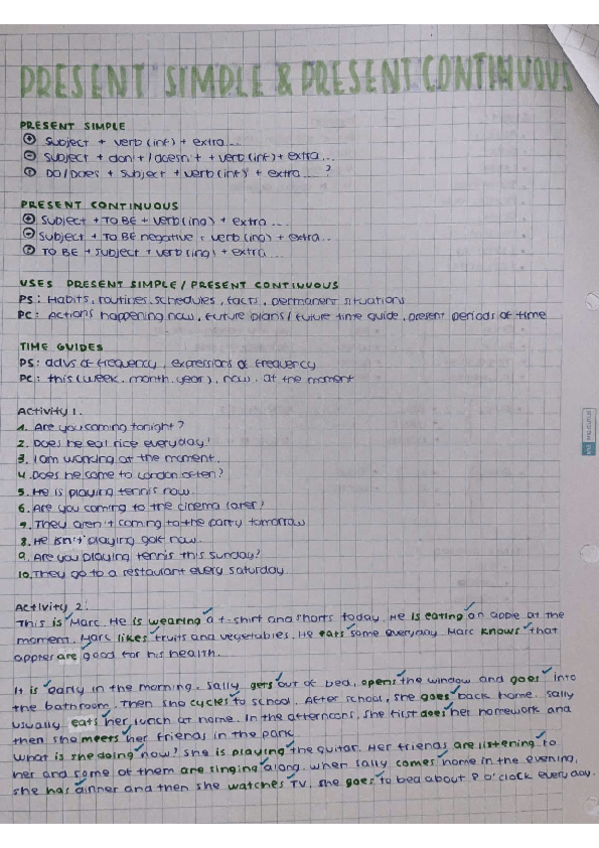 PRESENT SIMPLE & PRESENT CONTINUOUS
PRESENT SIMPLE
+ Subject + verb (inf) + extra...
- Subject + don't / doesn't + verb (inf) + extra...
? DO / Does + subject + verb (inf) + extra...?
PRESENT CONTINUOUS
+ Subject + TO BE + verb (ing) + extra...
- Subject + TO BE negative + verb (ing) + extra...
? TO BE + subject + verb (ing) + extra...
USES PRESENT SIMPLE / PRESENT CONTINUOUS
PS: Habits, routines, schedules, facts, permanent situations
PC: Actions happening now, future plans / future time guide, present periods of time
TIME GUIDES
PS: advs of frequency, expressions of frequency
PC: this (week, month, year), now, at the moment
Activity 1.
1. Are you coming tonight?
2. Does he eat rice everyday?
3. I am working at the moment.
4. Does he come to London often?
5. He is playing tennis now.
6. Are you coming to the cinema later?
7. They aren't coming to the party tomorrow
8. He isn't playing golf now.
9. Are you playing tennis this Sunday?
10. They go to a restaurant every saturday.
Activity 2:
This is Marc. He is wearing a t-shirt and shorts today. He is eating an apple at the
moment. Marc likes fruits and vegetables. He eats some everyday. Marc knows that
apples are good for his health.
It is early in the morning. Sally gets out of bed, opens the window and goes into
the bathroom. Then she cycles to school. After school, she goes back home. Sally
usually eats her lunch at home. In the afternoons, she first does her homework and
then she meets her friends in the park.
What is she doing now? She is playing the guitar. Her friends are listening to
her and some of them are singing along. When Sally comes home in the evening,
she has dinner and then she watches TV. she goes to bed about 8 o'clock every day.